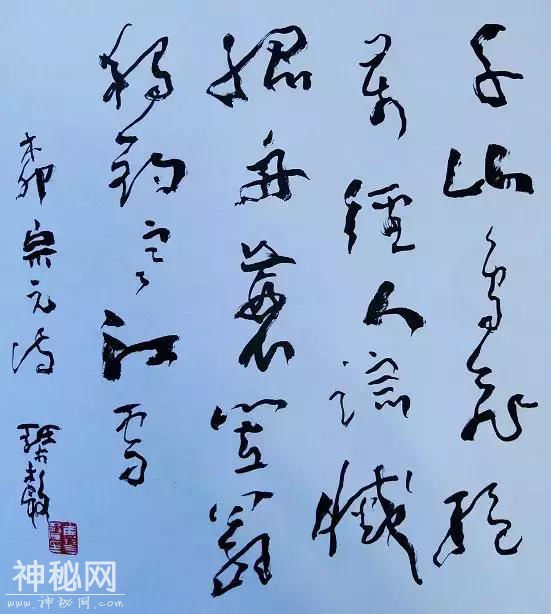 千山鳥飛絕
萬徑人蹤滅
孤舟蓑笠翁
獨釣寒江雪
柳宗元詩
神秘网
www.神秘网.com